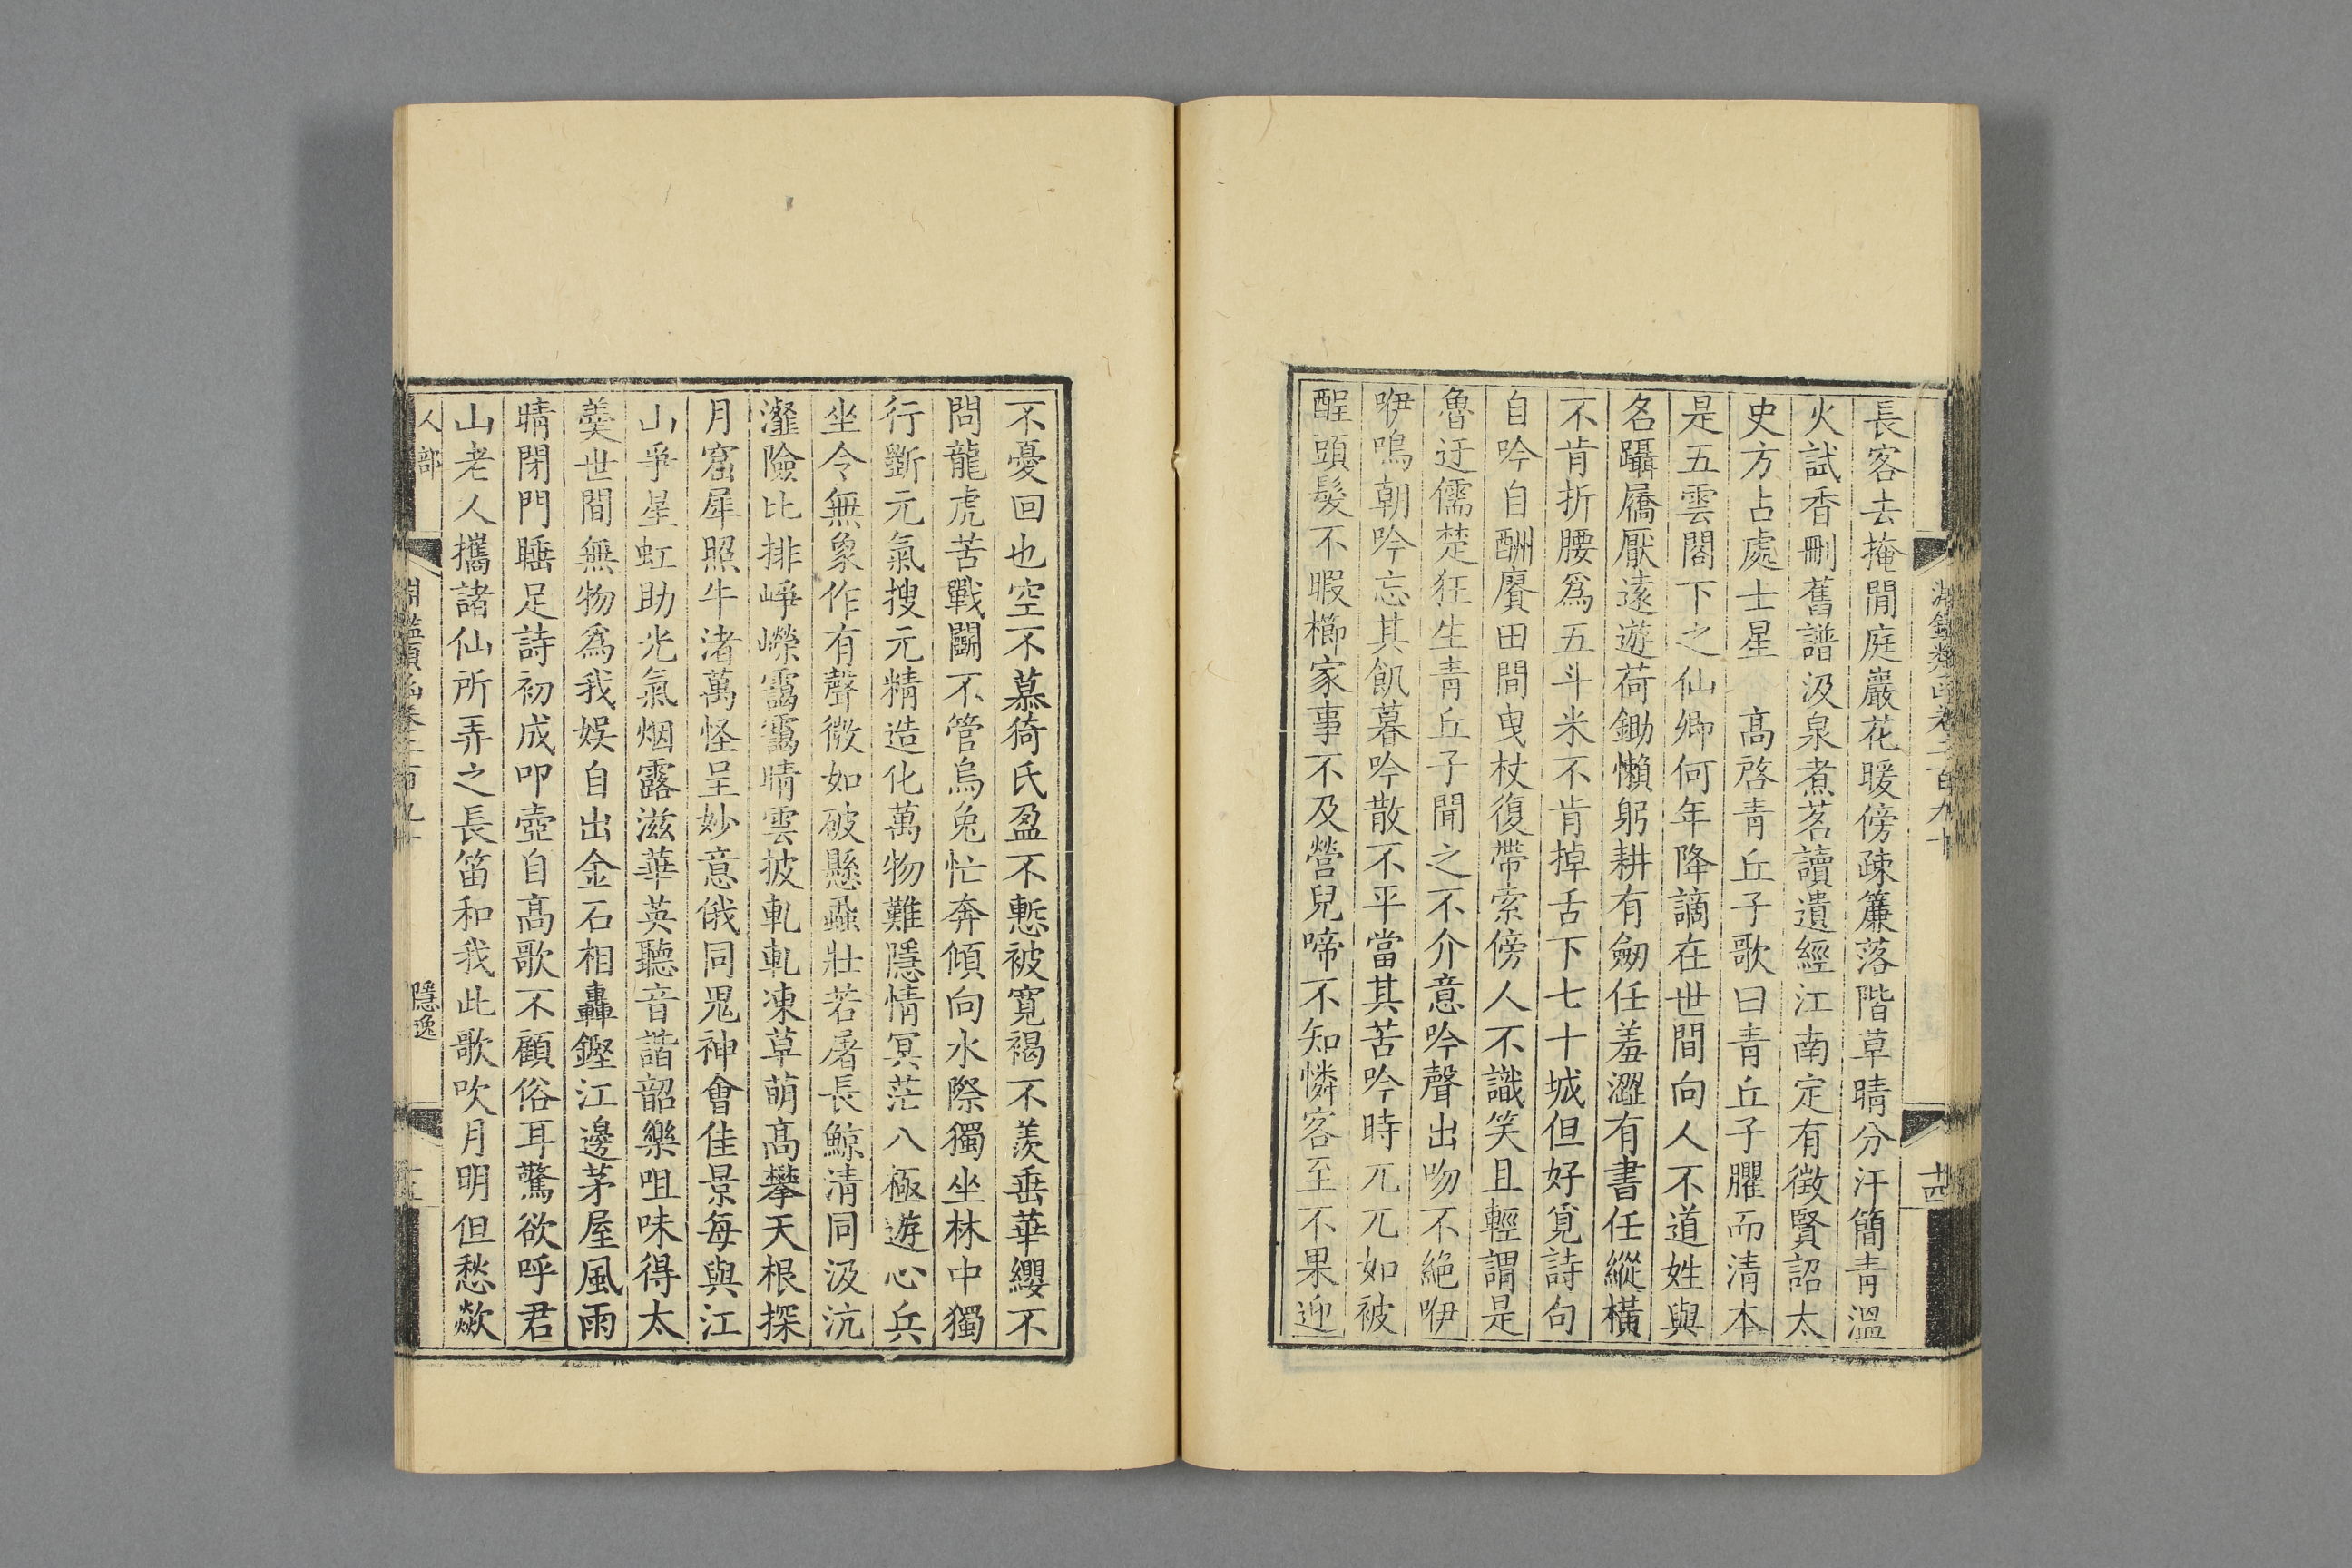 長客去掩閒庭嚴花暖傍疎簾落階草晴分汗簡青溫
火試香刪舊譜汲泉煮茗讀遺經江南定有徵賢詔太
史方占處士星　高啓青丘子歌曰青丘子臞而清本
是五雲閣下之仙卿何年降謫在世間向人不道姓與
名躡屩厭遠遊荷鋤懶躬耕有劒任羞澀有書任縱橫
不肯折腰爲五斗米不肯掉舌下七十城但好覓詩句
自吟自酬賡田間曳杖復帶索傍人不識笑且輕謂是
魯迂儒楚狂生青丘子聞之不介意吟聲出吻不絕咿
咿鳴朝吟忘其飢暮吟散不平當其苦吟時兀兀如被
酲頭髮不暇櫛家事不及營兒啼不知憐客至不果迎
淵鑑類函卷二百九十
十四
不憂回也空不慕猗氏盈不慙被寬褐不羨垂華纓不
問龍虎苦戰鬬不管烏兔忙奔傾向水際獨坐林中獨
行斲元氣搜元精造化萬物難隱情冥茫八極遊心兵
坐令無象作有聲微如破懸蝨壯若屠長鯨清同汲沆
瀣險比排崢嶸靄靄晴雲披軋軋凍草萌高攀天根探
月窟犀照牛渚萬怪呈妙意俄同鬼神會佳景每與江
山爭星虹助光氣烟露滋華英聽音諧韶樂咀味得太
羹世間無物爲我娛自出金石相轟鏗江邊茅屋風雨
晴閉門睡足詩初成叩壺自高歌不顧俗耳驚欲呼君
山老人攜諸仙所弄之長笛和我此歌吹月明但愁歘
人部
淵鑑類函卷二百九十
隱逸